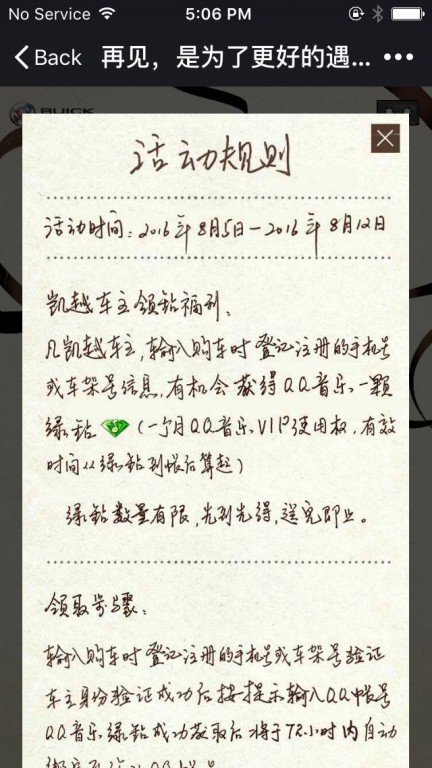 No Service 5:06 PM
Back 再见，是为了更好的遇...
BUICK
活动规则
活动时间：2016年8月5日—2016年8月12日
凯越车主领钻福利：
凡凯越车主，输入购车时登记注册的手机号
或车架号信息，有机会获得QQ音乐一颗
绿钻（一个月QQ音乐VIP使用权，有效
时间从绿钻到帐后算起）
绿钻数量有限，先到先得，送完即止。
领取步骤：
输入购车时登记注册的手机号或车架号验证
车主身份验证成功后按提示输入QQ帐号
QQ音乐绿钻成功获取后将于72小时内自动